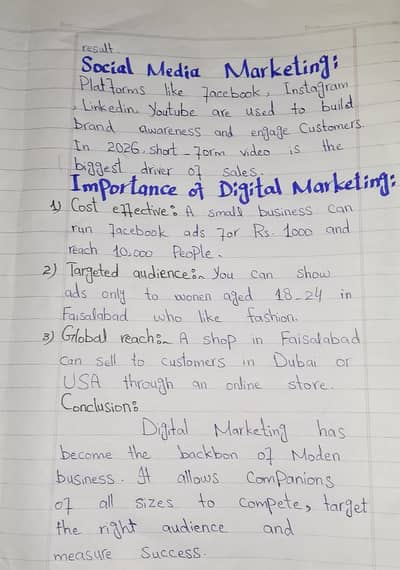 result.
Social Media Marketing:
Platforms like facebook, Instagram
, Linkedin, Youtube are used to build
brand awareness and engage Customers.
In 2026, short-form video is the
biggest driver of sales.
Importance of Digital Marketing:
1) Cost effective:- A small business can
run facebook ads for Rs. 1000 and
reach 10,000 People.
2) Targeted audience:- You can show
ads only to women aged 18-24 in
Faisalabad who like fashion.
3) Global reach:- A shop in Faisalabad
can sell to customers in Dubai or
USA through an online store.
Conclusion:
Digital Marketing has
become the backbon of Moden
business. It allows Companions
of all sizes to compete, target
the right audience and
measure Success.